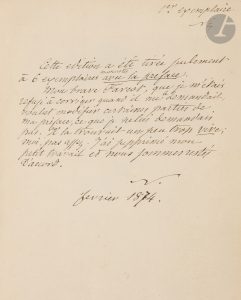 1er exemplaire
Cette édition a été tirée seulement
à 6 exemplaires avec la préface.
Mon brave Parrot, que je m'étais
refusé à corriger quand il me demandait,
voulait modifier certaines parties de
ma préface, ce que je ne lui demandais
pas. Il la trouvait un peu trop vive;
moi, pas assez. J'ai supprimé mon
petit travail et nous sommes restés
d'accord.
février 1874.